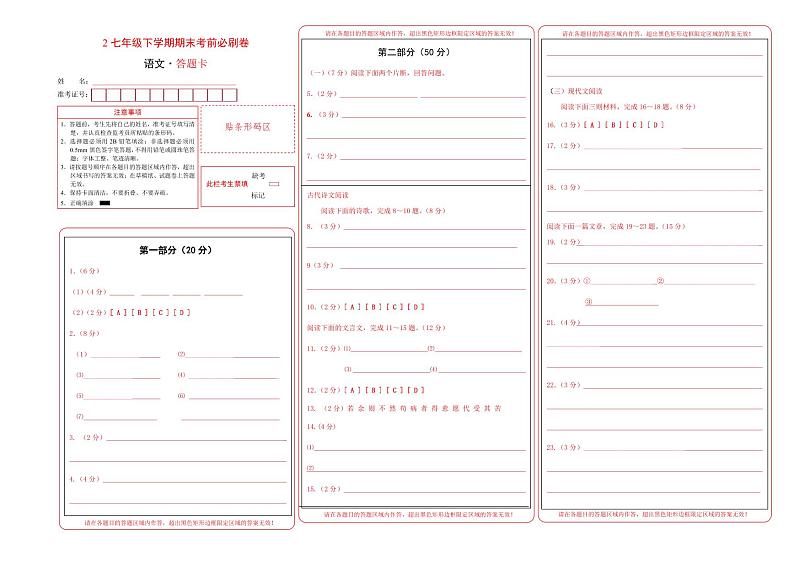 2 七年级下学期期末考前必刷卷
语文·答题卡
姓 名：
准考证号：
注意事项
1．答题前，考生先将自己的姓名，准考证号填写清
楚，并认真检查监考员所粘贴的条形码。
2．选择题必须用 2B 铅笔填涂；非选择题必须用
0.5mm 黑色签字笔答题，不得用铅笔或圆珠笔答
题；字体工整、笔迹清晰。
3．请按题号顺序在各题目的答题区域内作答，超出
区域书写的答案无效；在草稿纸、试题卷上答题
无效。
4．保持卡面清洁，不要折叠、不要弄破。
5．正确填涂
贴条形码区
此栏考生禁填
缺考
标记
第一部分（20 分）
1.（6 分）
（1）（4 分）
（2）（2 分）[ A ] [ B ] [ C ] [ D ]
2.（8 分）
（1） ⑵
⑶ ⑷
⑸ ⑹
⑺
3. （2 分）
4.（4 分）
请在各题目的答题区域内作答，超出黑色矩形边框限定区域的答案无效！
请在各题目的答题区域内作答，超出黑色矩形边框限定区域的答案无效！
第二部分（50 分）
（一）（7 分）阅读下面两个片断，回答问题。
5.（2 分）
6.（3 分）
7.（2 分）
古代诗文阅读
阅读下面的诗歌，完成 8～10 题。（8 分）
8. （3 分）
9（3 分）
10.（2 分）[ A ] [ B ] [ C ] [ D ]
阅读下面的文言文，完成 11～15 题。（12 分）
11.（2 分）⑴ ⑵
⑶ ⑷
12.（2 分）[ A ] [ B ] [ C ] [ D ]
13. （2 分）若 余 则 不 然 苟 病 者 得 愈 愿 代 受 其 苦
14.(4 分)
⑴
⑵
15.（2 分）
请在各题目的答题区域内作答，超出黑色矩形边框限定区域的答案无效！
请在各题目的答题区域内作答，超出黑色矩形边框限定区域的答案无效！
（三）现代文阅读
阅读下面三则材料，完成 16～18 题。（8 分）
16.（3 分）[ A ] [ B ] [ C ] [ D ]
17.（2 分）
18.（3 分）
阅读下面一篇文章，完成 19～23 题。（15 分）
19.（2 分）
20.（3 分）① ②
③
21.（4 分）
22.（3 分）
23.（3 分）
请在各题目的答题区域内作答，超出黑色矩形边框限定区域的答案无效！